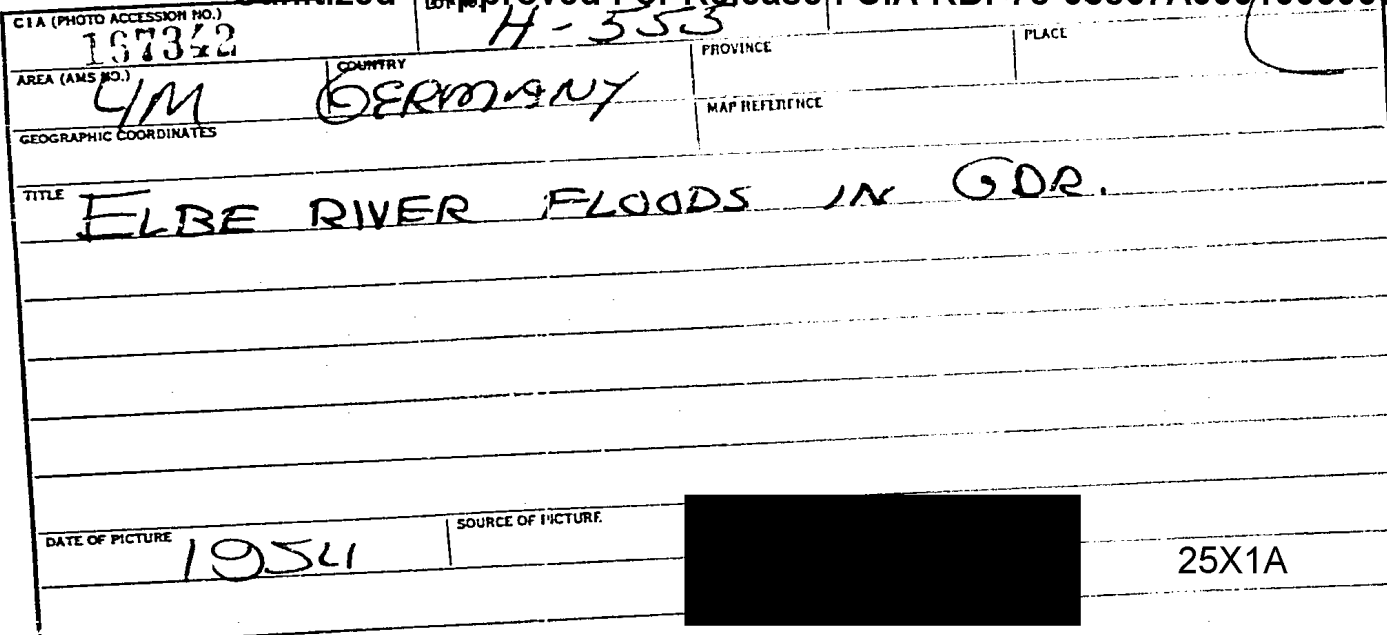 Approved For Release : CIA-RDP78-
CIA (PHOTO ACCESSION NO.)
167342
H-553
AREA (AMS NO.)
4M
COUNTRY
GERMANY
PROVINCE
PLACE
MAP REFERENCE
GEOGRAPHIC COORDINATES
TITLE
ELBE RIVER FLOODS IN GDR.
DATE OF PICTURE
1954
SOURCE OF PICTURE
25X1A